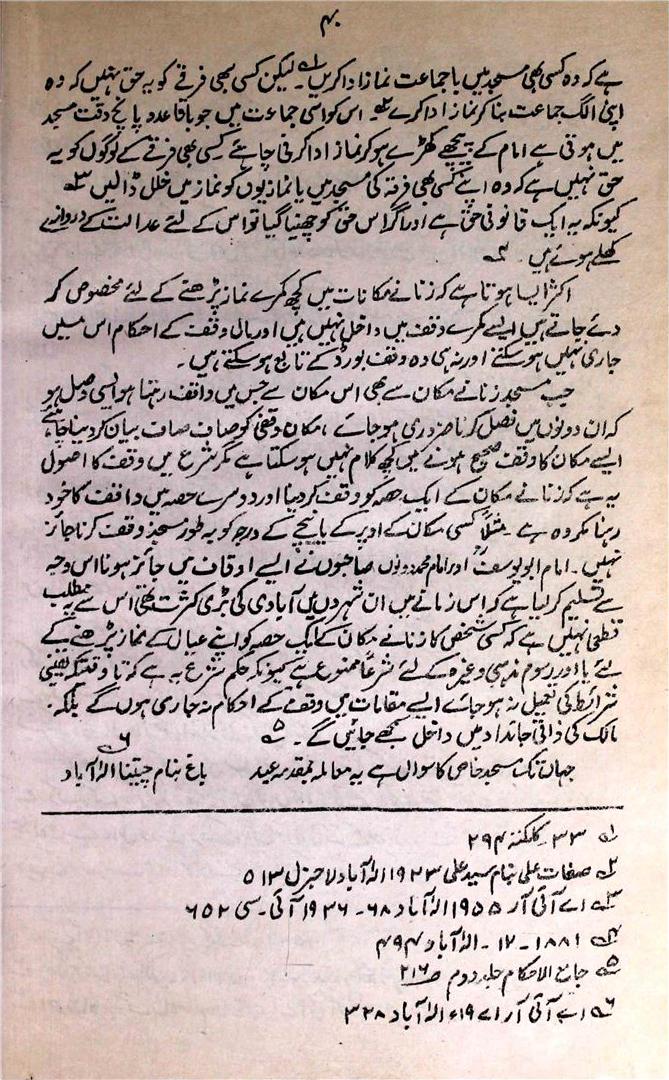 ۴۰
ہے کہ وہ کسی بھی مسجد میں باجماعت نماز ادا کریں ۱؎۔ لیکن کسی بھی فرقے کو یہ حق نہیں کہ وہ
اپنی الگ جماعت بنا کر نماز ادا کرے ۲؎ اس کو اسی جماعت میں جو باقاعدہ پانچ وقت مسجد
میں ہوتی ہے امام کے پیچھے کھڑے ہو کر نماز ادا کرنی چاہئے کسی بھی فرقے کے لوگوں کو یہ
حق نہیں ہے کہ وہ اپنے کسی بھی فرقہ کی مسجد میں یا نمازیوں کو نماز میں خلل ڈالیں ۳؎
کیونکہ یہ ایک قانونی حق ہے اور اگر اس حق کو چھینا گیا تو اس کے لئے عدالت کے دروازے
کھلے ہوئے ہیں۔ ۴؎
اکثر ایسا ہوتا ہے کہ زنانے مکانات میں کچھ کمرے نماز پڑھنے کے لئے مخصوص کر
دئے جاتے ہیں ایسے کمرے وقف میں داخل نہیں ہیں اور مال وقف کے احکام اس میں
جاری نہیں ہو سکتے اور نہ ہی وہ وقف بورڈ کے تابع ہو سکتے ہیں۔
جب مسجد زنانے مکان سے بھی اس مکان سے جس میں واقف رہتا ہو ایسی وصل ہو
کہ ان دونوں میں فصل کرنا ضروری ہو جائے، مکان وقفی کو صاف صاف بیان کر دینا چاہئے
ایسے مکان کا وقف صحیح ہونے میں کچھ کلام نہیں ہو سکتا ہے مگر شرع میں وقف کا اصول
یہ ہے کہ زنانے مکان کے ایک حصہ کو وقف کر دینا اور دوسرے حصہ میں واقف کا خود
رہنا مکروہ ہے۔ مثلاً کسی مکان کے اوپر کے یا نیچے کے درجہ کو بہ طور مسجد وقف کرنا جائز
نہیں۔ امام ابو یوسفؒ اور امام محمد دونوں صاحبوں نے ایسے اوقاف میں جائز ہونا اس وجہ
سے تسلیم کر لیا ہے کہ اس زمانے میں ان شہروں میں آبادی کی بڑی کثرت تھی اس سے یہ مطلب
قطعی نہیں ہے کہ کسی شخص کا زنانے مکان کے ایک حصہ کو اپنے عیال کے نماز پڑھنے کے
لئے یا اور رسوم مذہبی وغیرہ کے لئے شرعاً ممنوع ہے کیونکہ حکم شرع یہ ہے کہ تا وقتیکہ یقینی
شرائط کی تعمیل نہ ہو جائے ایسے مقامات میں وقف کے احکام نہ جاری ہوں گے بلکہ
مالک کی ذاتی جائداد میں داخل سمجھے جائیں گے۔ ۵؎
جہاں تک مسجد خاص کا سوال ہے یہ معاملہ بمقدمہ عید باغ بنام چیتنا الہ آباد ۶؎
۱؎ ۳۳ کلکتہ ۲۹۴
۲؎ صفات علی بنام سید علی ۱۹۲۳ الہ آباد لاجرنل ۵۱۳
۳؎ اے آئی آر ۱۹۵۵ الہ آباد ۶۸۔ ۱۹۳۶ آئی۔سی ۶۵۲
۴؎ ۱۸۸۱۔ ۱۲۔ الہ آباد ۴۹۴
۵؎ جامع الاحکام جلد دوم ص ۲۱۶
۶؎ اے آئی آر ۱۹۷۱ء الہ آباد ۳۲۸